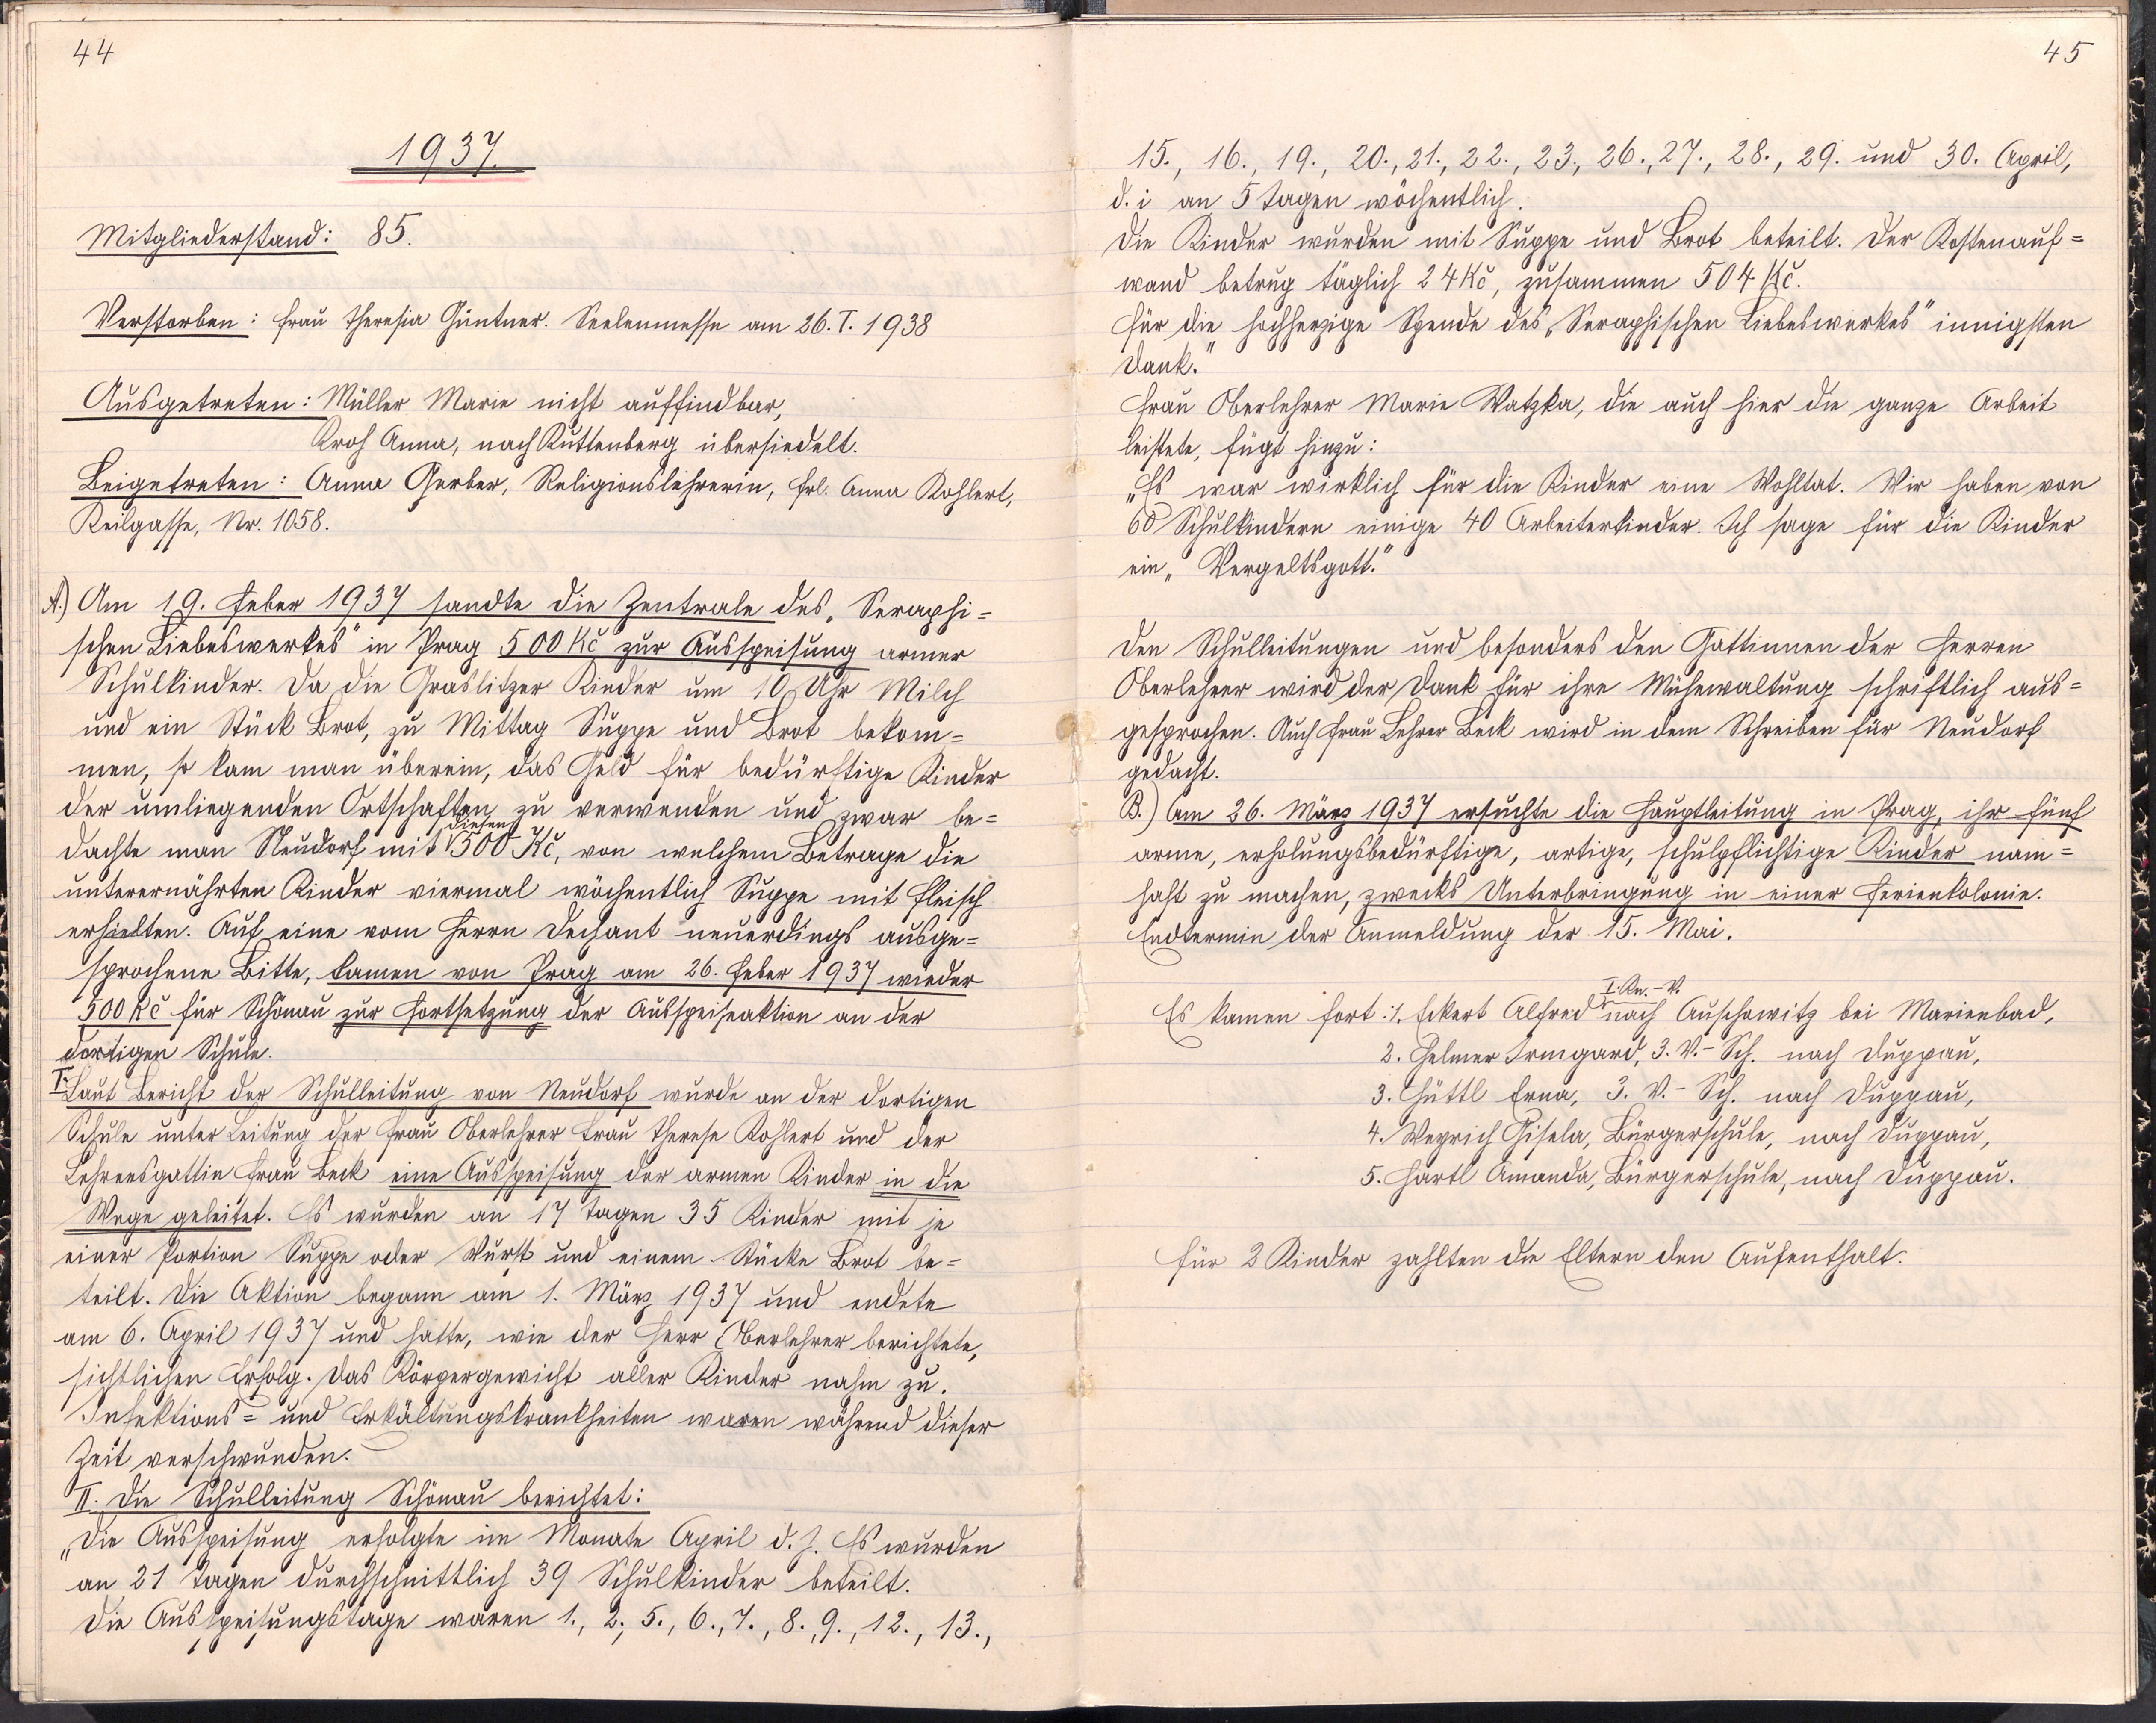 44
1937.
Mitgliederstand: 85.
Verstorben: Frau Theresia Güntner. Seelenmesse am 26. I. 1938
Ausgetreten: Müller Marie nicht auffindbar,
Kroh Anna, nach Kuttenberg übersiedelt.
Beigetreten: Anna Gerber, Religionslehrerin, Frl. Anna Kohlert,
Keilgasse, Nr. 1058.
A.) Am 19. Feber 1937 sandte die Zentrale des „Seraphi=
schen Liebeswerkes" in Prag 500 Kč zur Ausspeisung armer
Schulkinder. Da die Graslitzer Kinder um 10 Uhr Milch
und ein Stück Brot, zu Mittag Suppe und Brot bekom=
men, so kam man überein, das Geld für bedürftige Kinder
der umliegenden Ortschaften zu verwenden und zwar be=
dachte man Neudorf mit diesen 500 Kč, von welchem Betrage die
unterernährten Kinder viermal wöchentlich Suppe mit Fleisch
erhielten. Auf eine vom Herrn Dechant neuerdings ausge=
sprochene Bitte, kamen von Prag am 26. Feber 1937 wieder
500 Kč für Schönau zur Fortsetzung der Ausspeiseaktion an der
dortigen Schule.
I. Laut Bericht der Schulleitung von Neudorf wurde an der dortigen
Schule unter Leitung der Frau Oberlehrer Frau Therese Kohlert und der
Lehrersgattin Frau Beck eine Ausspeisung der armen Kinder in die
Wege geleitet. Es wurden an 17 Tagen 35 Kinder mit je
einer Portion Suppe oder Wurst und einem Stücke Brot be=
teilt. Die Aktion begann am 1. März 1937 und endete
am 6. April 1937 und hatte, wie der Herr Oberlehrer berichtete,
sichtlichen Erfolg. Das Körpergewicht aller Kinder nahm zu.
Infektions= und Erkältungskrankheiten waren während dieser
Zeit verschwunden.
II. Die Schulleitung Schönau berichtet:
„Die Ausspeisung erfolgte im Monate April d. J. Es wurden
an 21 Tagen durchschnittlich 39 Schulkinder beteilt.
Die Ausspeisungstage waren 1., 2., 5., 6., 7., 8., 9., 12., 13.,
45
15., 16., 19., 20., 21., 22., 23., 26., 27., 28., 29. und 30. April,
d. i an 5 Tagen wöchentlich.
Die Kinder wurden mit Suppe und Brot beteilt. Der Kostenauf=
wand betrug täglich 24 Kč, zusammen 504 Kč.
Für die hochherzige Spende des „Seraphischen Liebeswerkes" innigsten
Dank."
Frau Oberlehrer Marie Watzka, die auch hier die ganze Arbeit
leistete, fügt hinzu:
„Es war wirklich für die Kinder eine Wohltat. Wir haben von
60 Schulkindern einige 40 Arbeiterkinder. Ich sage für die Kinder
ein „Vergeltsgott."
Den Schulleitungen und besonders den Gattinnen der Herren
Oberlehrer wird der Dank für ihre Mühewaltung schriftlich aus=
gesprochen. Auch Frau Lehrer Beck wird in dem Schreiben für Neudorf
gedacht.
B.) Am 26. März 1937 ersuchte die Hauptleitung in Prag, ihr fünf
arme, erholungsbedürftige, artige, schulpflichtige Kinder nam=
haft zu machen, zwecks Unterbringung in einer Ferienkolonie.
Endtermin der Anmeldung der 15. Mai.
Es kamen fort: 1. Eckert Alfred I. Kn.-V. nach Auschowitz bei Marienbad,
2. Helmer Irmgard, 3. V.-Sch. nach Duppau,
3. Hüttl Erna, 3. V.-Sch. nach Duppau,
4. Weyrich Gisela, Bürgerschule, nach Duppau,
5. Hartl Amanda, Bürgerschule, nach Duppau.
Für 2 Kinder zahlten die Eltern den Aufenthalt.